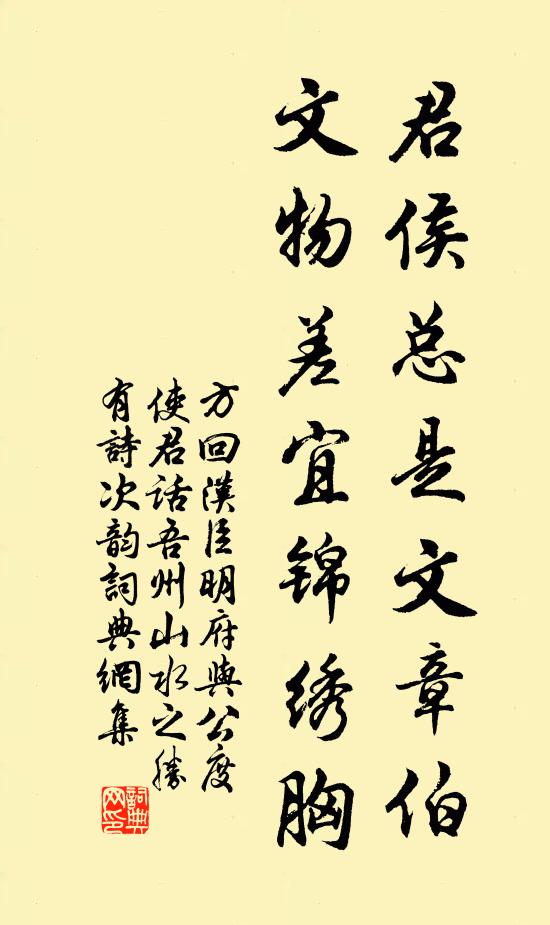 君侯总是文章伯
文物差宜锦绣胸
方回漢臣明府與公度
使君话吾州山水之勝
有詩次韵詞典網集
詞典网印